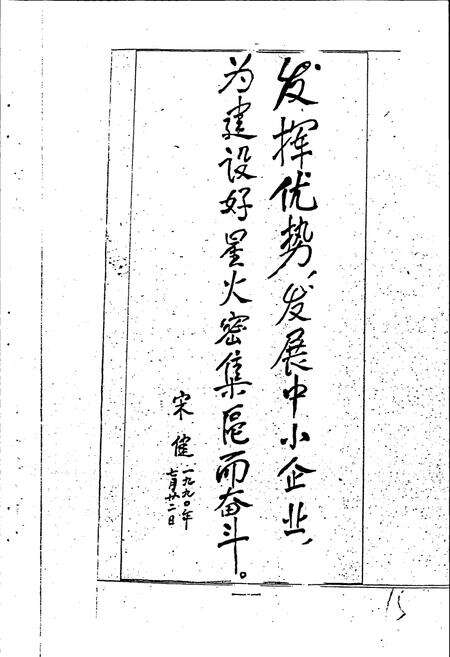 发挥优势、发展中小企业，
为建设好星火密集區而奋斗。
宋健
一九九〇年
七月廿二日
15